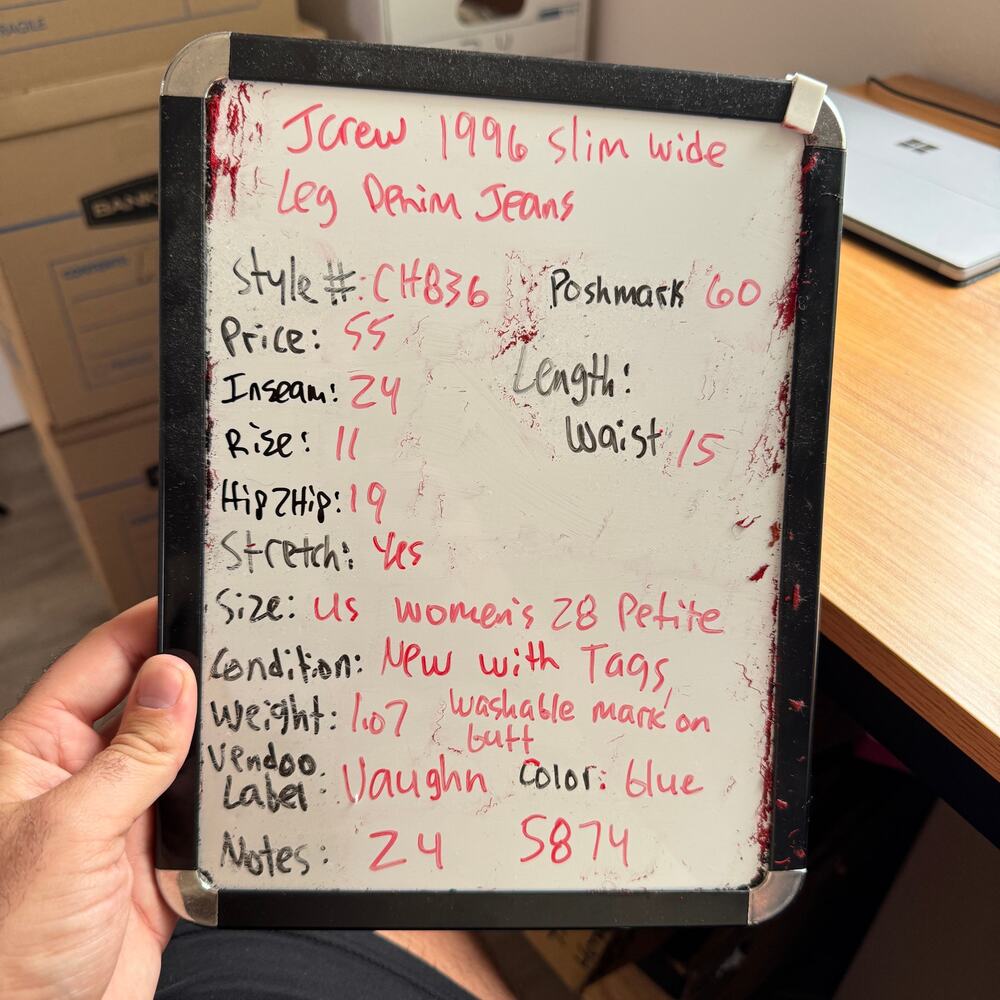 FRAGILE
BANK
Jcrew 1996 Slim wide
Leg Denim Jeans
Style #: CH836
Poshmark 60
Price: 55
Inseam: 24
Length:
Rise: 11
Waist 15
Hip2Hip: 19
Stretch: Yes
Size: US women's 28 Petite
Condition: New with Tags,
Weight: 1.07
washable mark on
butt
Vendoo
Label: Vaughn
Color: blue
Notes: 24 5874